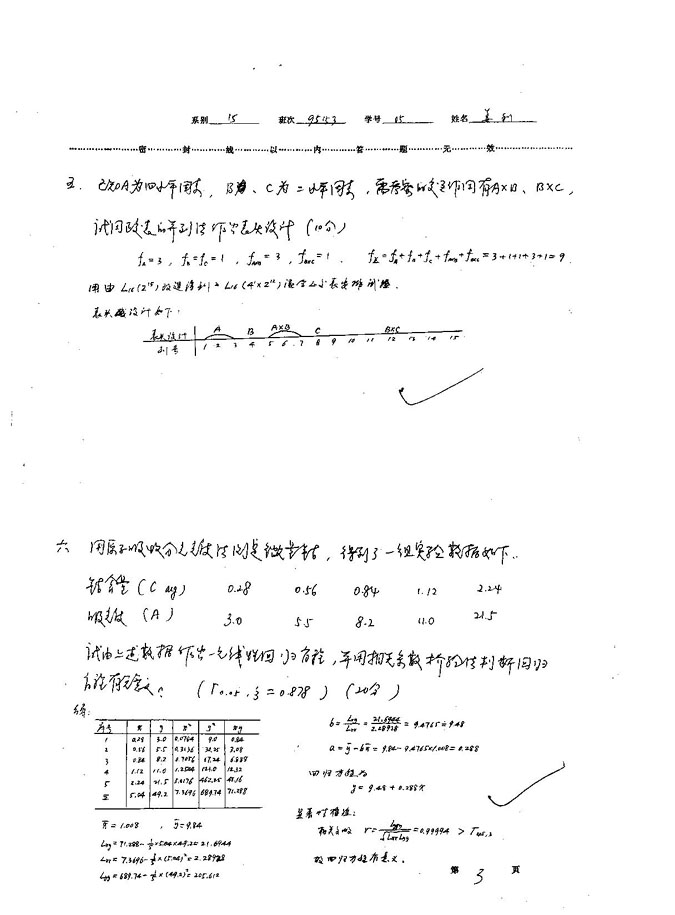 系别 15 班次 9543 学号 05 姓名
密 封 线 以 内 答 题 无 效
五. 已知A为四水平因素, B、C为二水平因素, 需考察的交互作用有A×B、B×C,
试用改造的并列法作出表头设计 (10分)
fA=3, fB=fC=1, fA×B=3, fB×C=1. f总=fA+fB+fC+fA×B+fB×C=3+1+1+3+1=9
用由L16(2^15)改造得到的L16(4×2^12)混合水平表安排试验.
表头设计如下:
表头设计 A B A×B C B×C
列号 1 2 3 4 5 6 7 8 9 10 11 12 13 14 15
六 用原子吸收分光光度法测定微量钴, 得到了一组实验数据如下.
钴含量 (C ug) 0.28 0.56 0.84 1.12 2.24
吸光度 (A) 3.0 5.5 8.2 11.0 21.5
试由上述数据作出一元线性回归方程, 并用相关系数检验法判断回归
方程有无意义? (r0.05,3=0.878) (20分)
解:
序号 x y x² y² xy
1 0.28 3.0 0.0784 9.0 0.84
2 0.56 5.5 0.3136 30.25 3.08
3 0.84 8.2 0.7056 67.24 6.888
4 1.12 11.0 1.2544 121.0 12.32
5 2.24 21.5 5.0176 462.25 48.16
Σ 5.04 49.2 7.3696 689.74 71.288
x̄=1.008, ȳ=9.84
Lxy=71.288-1/5×5.04×49.2=21.6944
Lxx=7.3696-1/5×(5.04)²=2.28928
Lyy=689.74-1/5×(49.2)²=205.612
b=Lxy/Lxx=21.6944/2.28928=9.4765≈9.48
a=ȳ-bx̄=9.84-9.4765×1.008=0.288
回归方程为
y=9.48+0.288x
显著性检验:
相关系数 r=Lxy/√LxxLyy=0.99994 > r0.05,3
故回归方程有意义.
第 3 页